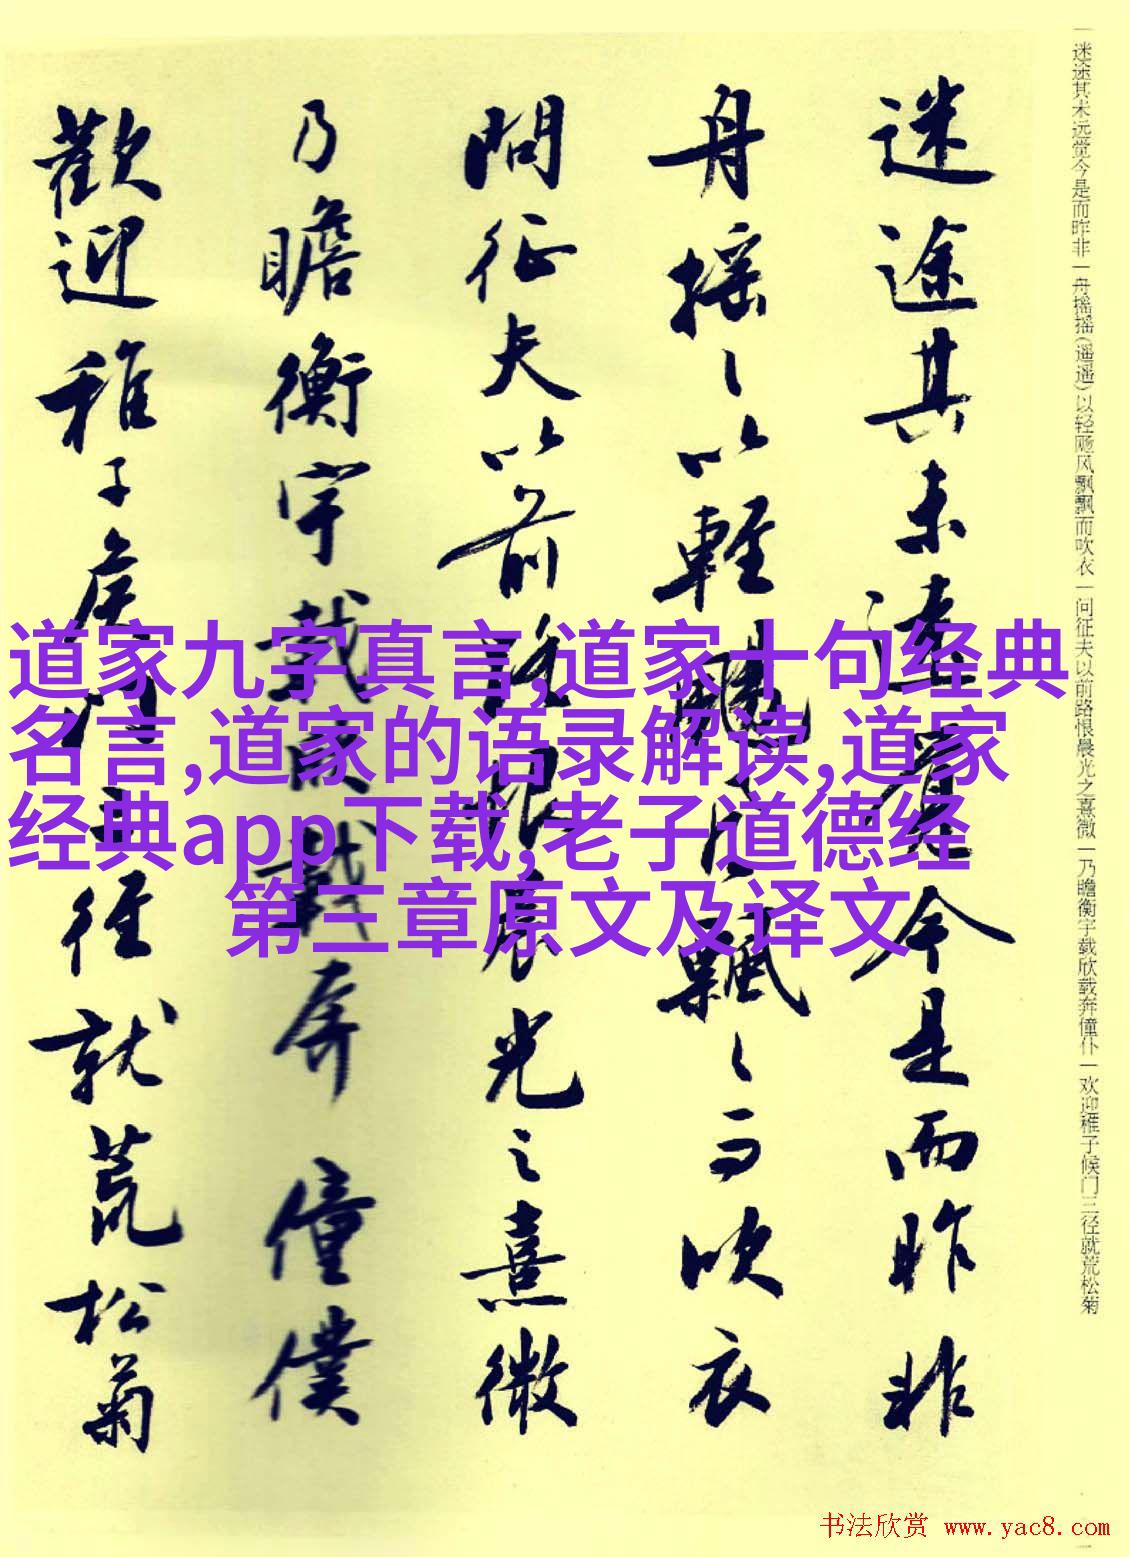 迷途其未遠覺今是而昨非
舟摇〻以輕颺風飄〻而吹衣
問征夫以前路恨晨光之熹微
乃瞻衡宇載欣載奔僮僕
歡迎稚子候門三徑就荒松菊
一迷途其未远觉今是而昨非一舟摇摇(遥遥)以轻飏风飘飘而吹衣一问征夫以前路恨晨光之熹微一乃瞻衡宇载欣载奔僮仆一欢迎稚子候门三径就荒松菊
道家九字真言,道家十句经典
名言,道家的语录解读,道家
经典app下载,老子道德经
第三章原文及译文
书法欣赏 www.yac8.com